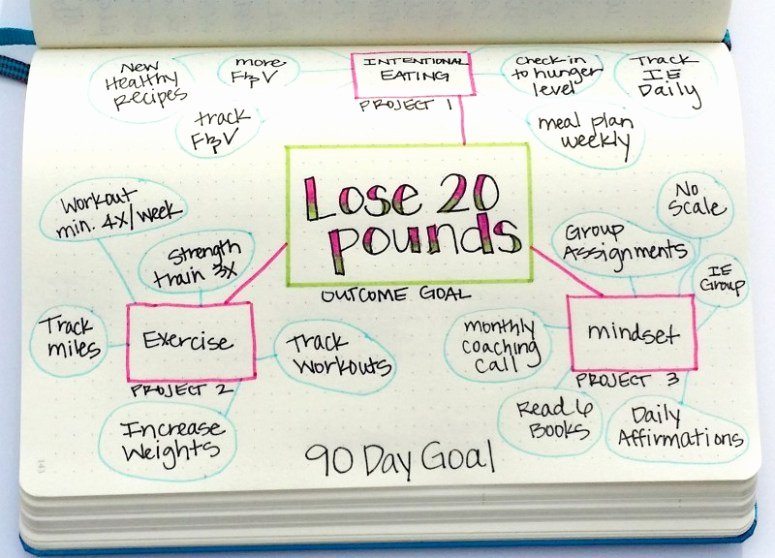 INTENTIONAL
EATING
PROJECT 1
New
Healthy
Recipes
more
F&V
track
F&V
Check-in
to hunger
level
Track
IE
Daily
meal plan
weekly
Lose 20
pounds
OUTCOME GOAL
Workout
min. 4x/week
Strength
train 3x
Track
miles
Exercise
PROJECT 2
Track
Workouts
Increase
Weights
Group
Assignments
No
Scale
IE
Group
monthly
coaching
call
mindset
PROJECT 3
Read 6
Books
Daily
Affirmations
90 Day Goal